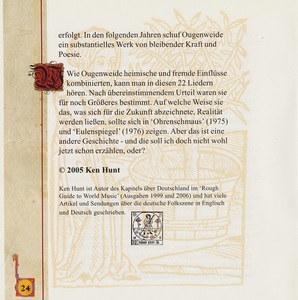 erfolgt. In den folgenden Jahren schuf Ougenweide
ein substantielles Werk von bleibender Kraft und
Poesie.
Wie Ougenweide heimische und fremde Einflüsse
kombinierten, kann man in diesen 22 Liedern
hören. Nach übereinstimmendem Urteil waren sie
für noch Größeres bestimmt. Auf welche Weise sie
das, was sich für die Zukunft abzeichnete, Realität
werden ließen, sollte sich in 'Ohrenschmaus' (1975)
und 'Eulenspiegel' (1976) zeigen. Aber das ist eine
andere Geschichte - und die soll ich doch nicht wohl
jetzt schon erzählen, oder?
© 2005 Ken Hunt
Ken Hunt ist Autor des Kapitels über Deutschland im 'Rough
Guide to World Music' (Ausgaben 1999 und 2006) und hat viele
Artikel und Sendungen über die deutsche Folkszene in Englisch
und Deutsch geschrieben.
24